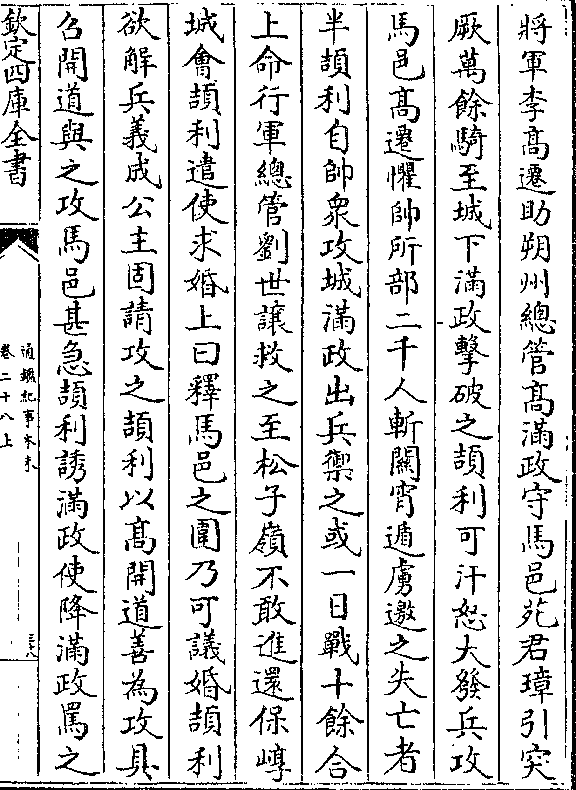 將軍李高遷助朔州總管高滿政守馬邑苑君璋引突
厥萬餘騎至城下滿政擊破之頡利可汗怒大發兵攻
馬邑高遷懼帥所部二千人斬關宵遁虜邀之失亡者
半頡利自帥衆攻城滿政出兵禦之或一日戰十餘合
上命行軍總管劉世讓救之至松子嶺不敢進還保崞
城會頡利遣使求婚上曰釋馬邑之圍乃可議婚頡利
欲解兵義成公主固請攻之頡利以高開道善為攻具
召開道與之攻馬邑甚急頡利誘滿政使降滿政罵之
欽定四庫全書
通鑑紀事本末
卷二十八上